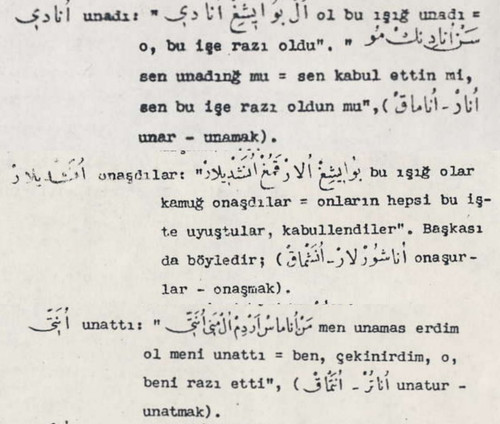 اُنادي unadı: " اُلْ بُو ايشِغْ اُنادي ol bu ışığ unadı =
o, bu işe razı oldu". " سَنْ اُنادِنْكْ مُو
sen unadınğ mu = sen kabul ettin mi,
sen bu işe razı oldun mu",( اُنارْ - اُناماقْ
unar - unamak).
onaşdılar: " بُو ايشِغْ اُلارْ قَمُغْ اُنَشْديلارْ bu ışığ olar
kamuğ onaşdılar = onların hepsi bu iş-
te uyuştular, kabullendiler". Başkası
da böyledir; ( اُناشُورْلارْ - اُنَشْماقْ onaşur-
lar - onaşmak).
unattı: " مَنْ اُناماسْ اَرْدِمْ اُلْ مَنى اُنَتّى men unamas erdim
ol meni unattı = ben, çekinirdim, o,
beni razı etti", ( اُناتُرْ - اُنَتْماقْ unatur -
unatmak).